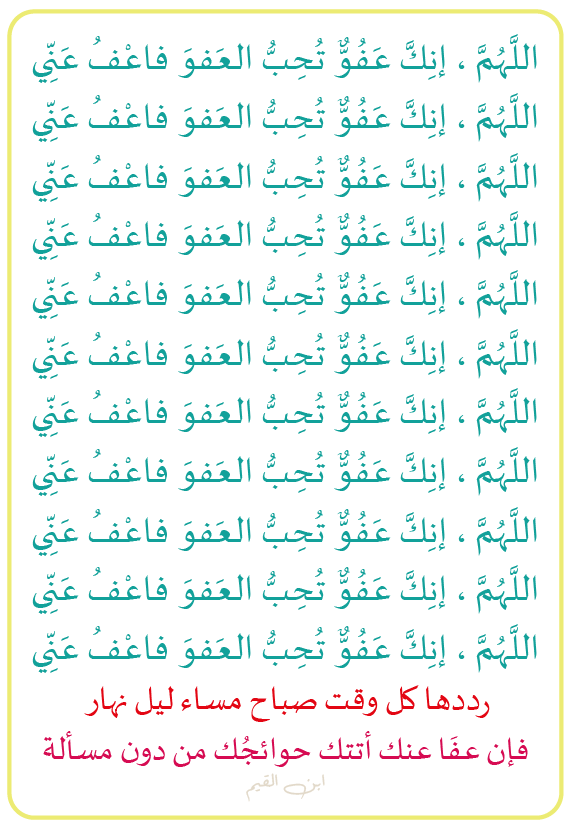 اللَّهُمَّ ، إنِكَّ عَفُوٌّ تُحِبُّ العَفوَ فاعْفُ عَنِّي
اللَّهُمَّ ، إنِكَّ عَفُوٌّ تُحِبُّ العَفوَ فاعْفُ عَنِّي
اللَّهُمَّ ، إنِكَّ عَفُوٌّ تُحِبُّ العَفوَ فاعْفُ عَنِّي
اللَّهُمَّ ، إنِكَّ عَفُوٌّ تُحِبُّ العَفوَ فاعْفُ عَنِّي
اللَّهُمَّ ، إنِكَّ عَفُوٌّ تُحِبُّ العَفوَ فاعْفُ عَنِّي
اللَّهُمَّ ، إنِكَّ عَفُوٌّ تُحِبُّ العَفوَ فاعْفُ عَنِّي
اللَّهُمَّ ، إنِكَّ عَفُوٌّ تُحِبُّ العَفوَ فاعْفُ عَنِّي
اللَّهُمَّ ، إنِكَّ عَفُوٌّ تُحِبُّ العَفوَ فاعْفُ عَنِّي
اللَّهُمَّ ، إنِكَّ عَفُوٌّ تُحِبُّ العَفوَ فاعْفُ عَنِّي
اللَّهُمَّ ، إنِكَّ عَفُوٌّ تُحِبُّ العَفوَ فاعْفُ عَنِّي
اللَّهُمَّ ، إنِكَّ عَفُوٌّ تُحِبُّ العَفوَ فاعْفُ عَنِّي
رددها كل وقت صباح مساء ليل نهار
فإن عفَا عنك أتتك حوائجُك من دون مسألة
ابن القيم